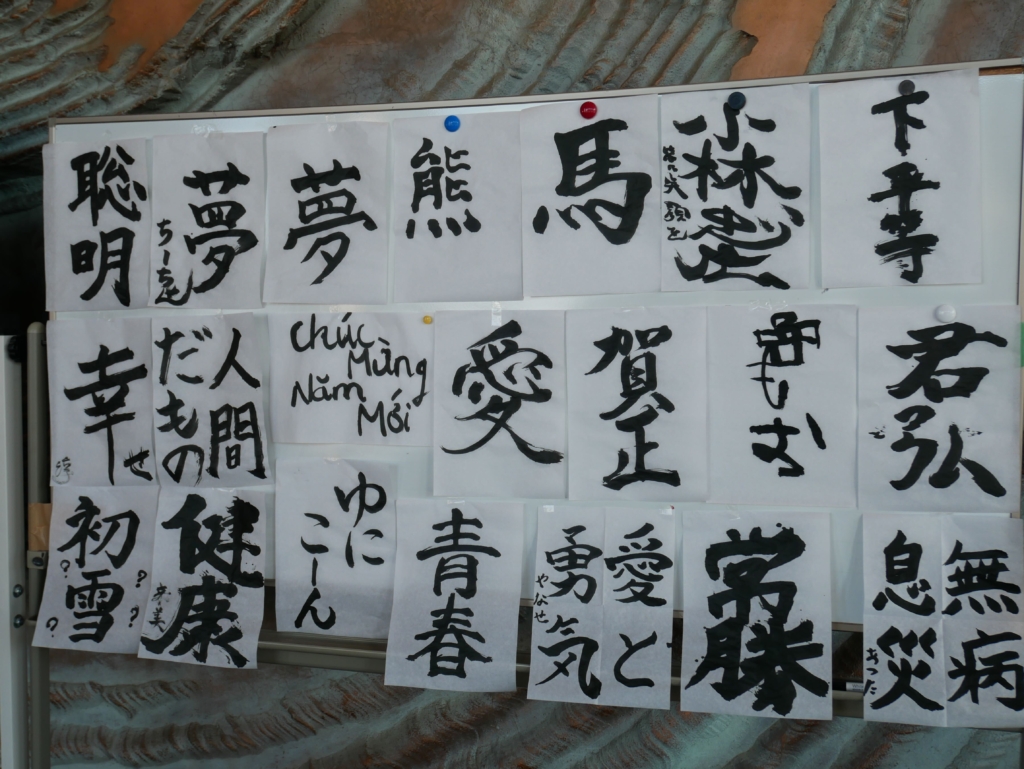 聡明
夢
ちーちも
夢
熊
馬
小林
下平等
幸せ
人間
だもの
Chúc
Mừng
Năm
Mới
愛
賀正
君弘
初雪
? ? ? ?
健康
ゆに
こーん
青春
愛と
勇気
やなせ
常勝
無病
息災
あつた